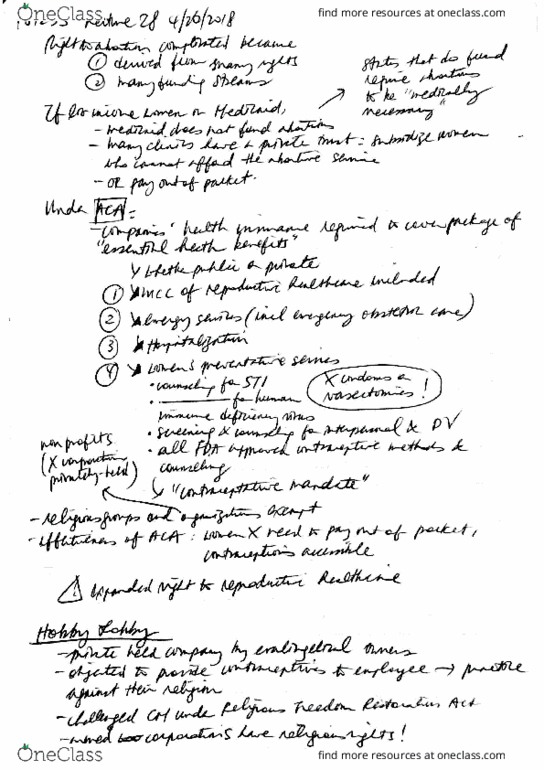 OneClass
find more resources at oneclass.com
find more resources at oneclass.com
Lecture 28 4/26/2018
Right to abortion complicated because
① derived from many rights
② many funding streams
states that do fund
require abortions
to be "medically
necessary"
If low income women on Medicaid,
- medicaid does not fund abortions
- many clinics have a private trust = subsidize women
who cannot afford the abortive service
- OR pay out of pocket.
Under ACA =
- companies' health insurance required to cover package of
"essential health benefits"
↳ whether public or private
① of reproductive healthcare included
② emergency services (incl emergency obstetric care)
③ Hospitalization
④ women's preventative services
• counseling for STI
X condoms or
vasectomies!
• for human
immune deficiency virus
• screening & counseling for interpersonal & DV
• all FDA approved contraceptive methods &
counseling
↳ "contraceptative mandate"
non profits
(X corporations
privately-held)
- religious groups and organizations exempt
- effectiveness of ACA: women X need to pay out of pocket,
contraceptions accessible
expanded right to reproductive healthcare
Hobby Lobby
- private held company by evangelical owners
- objected to provide contraceptives to employee → practice
against their religion
- challenged under Religious Freedom Restoration Act
- corporations have religious rights!
OneClass
find more resources at oneclass.com
find more resources at oneclass.com